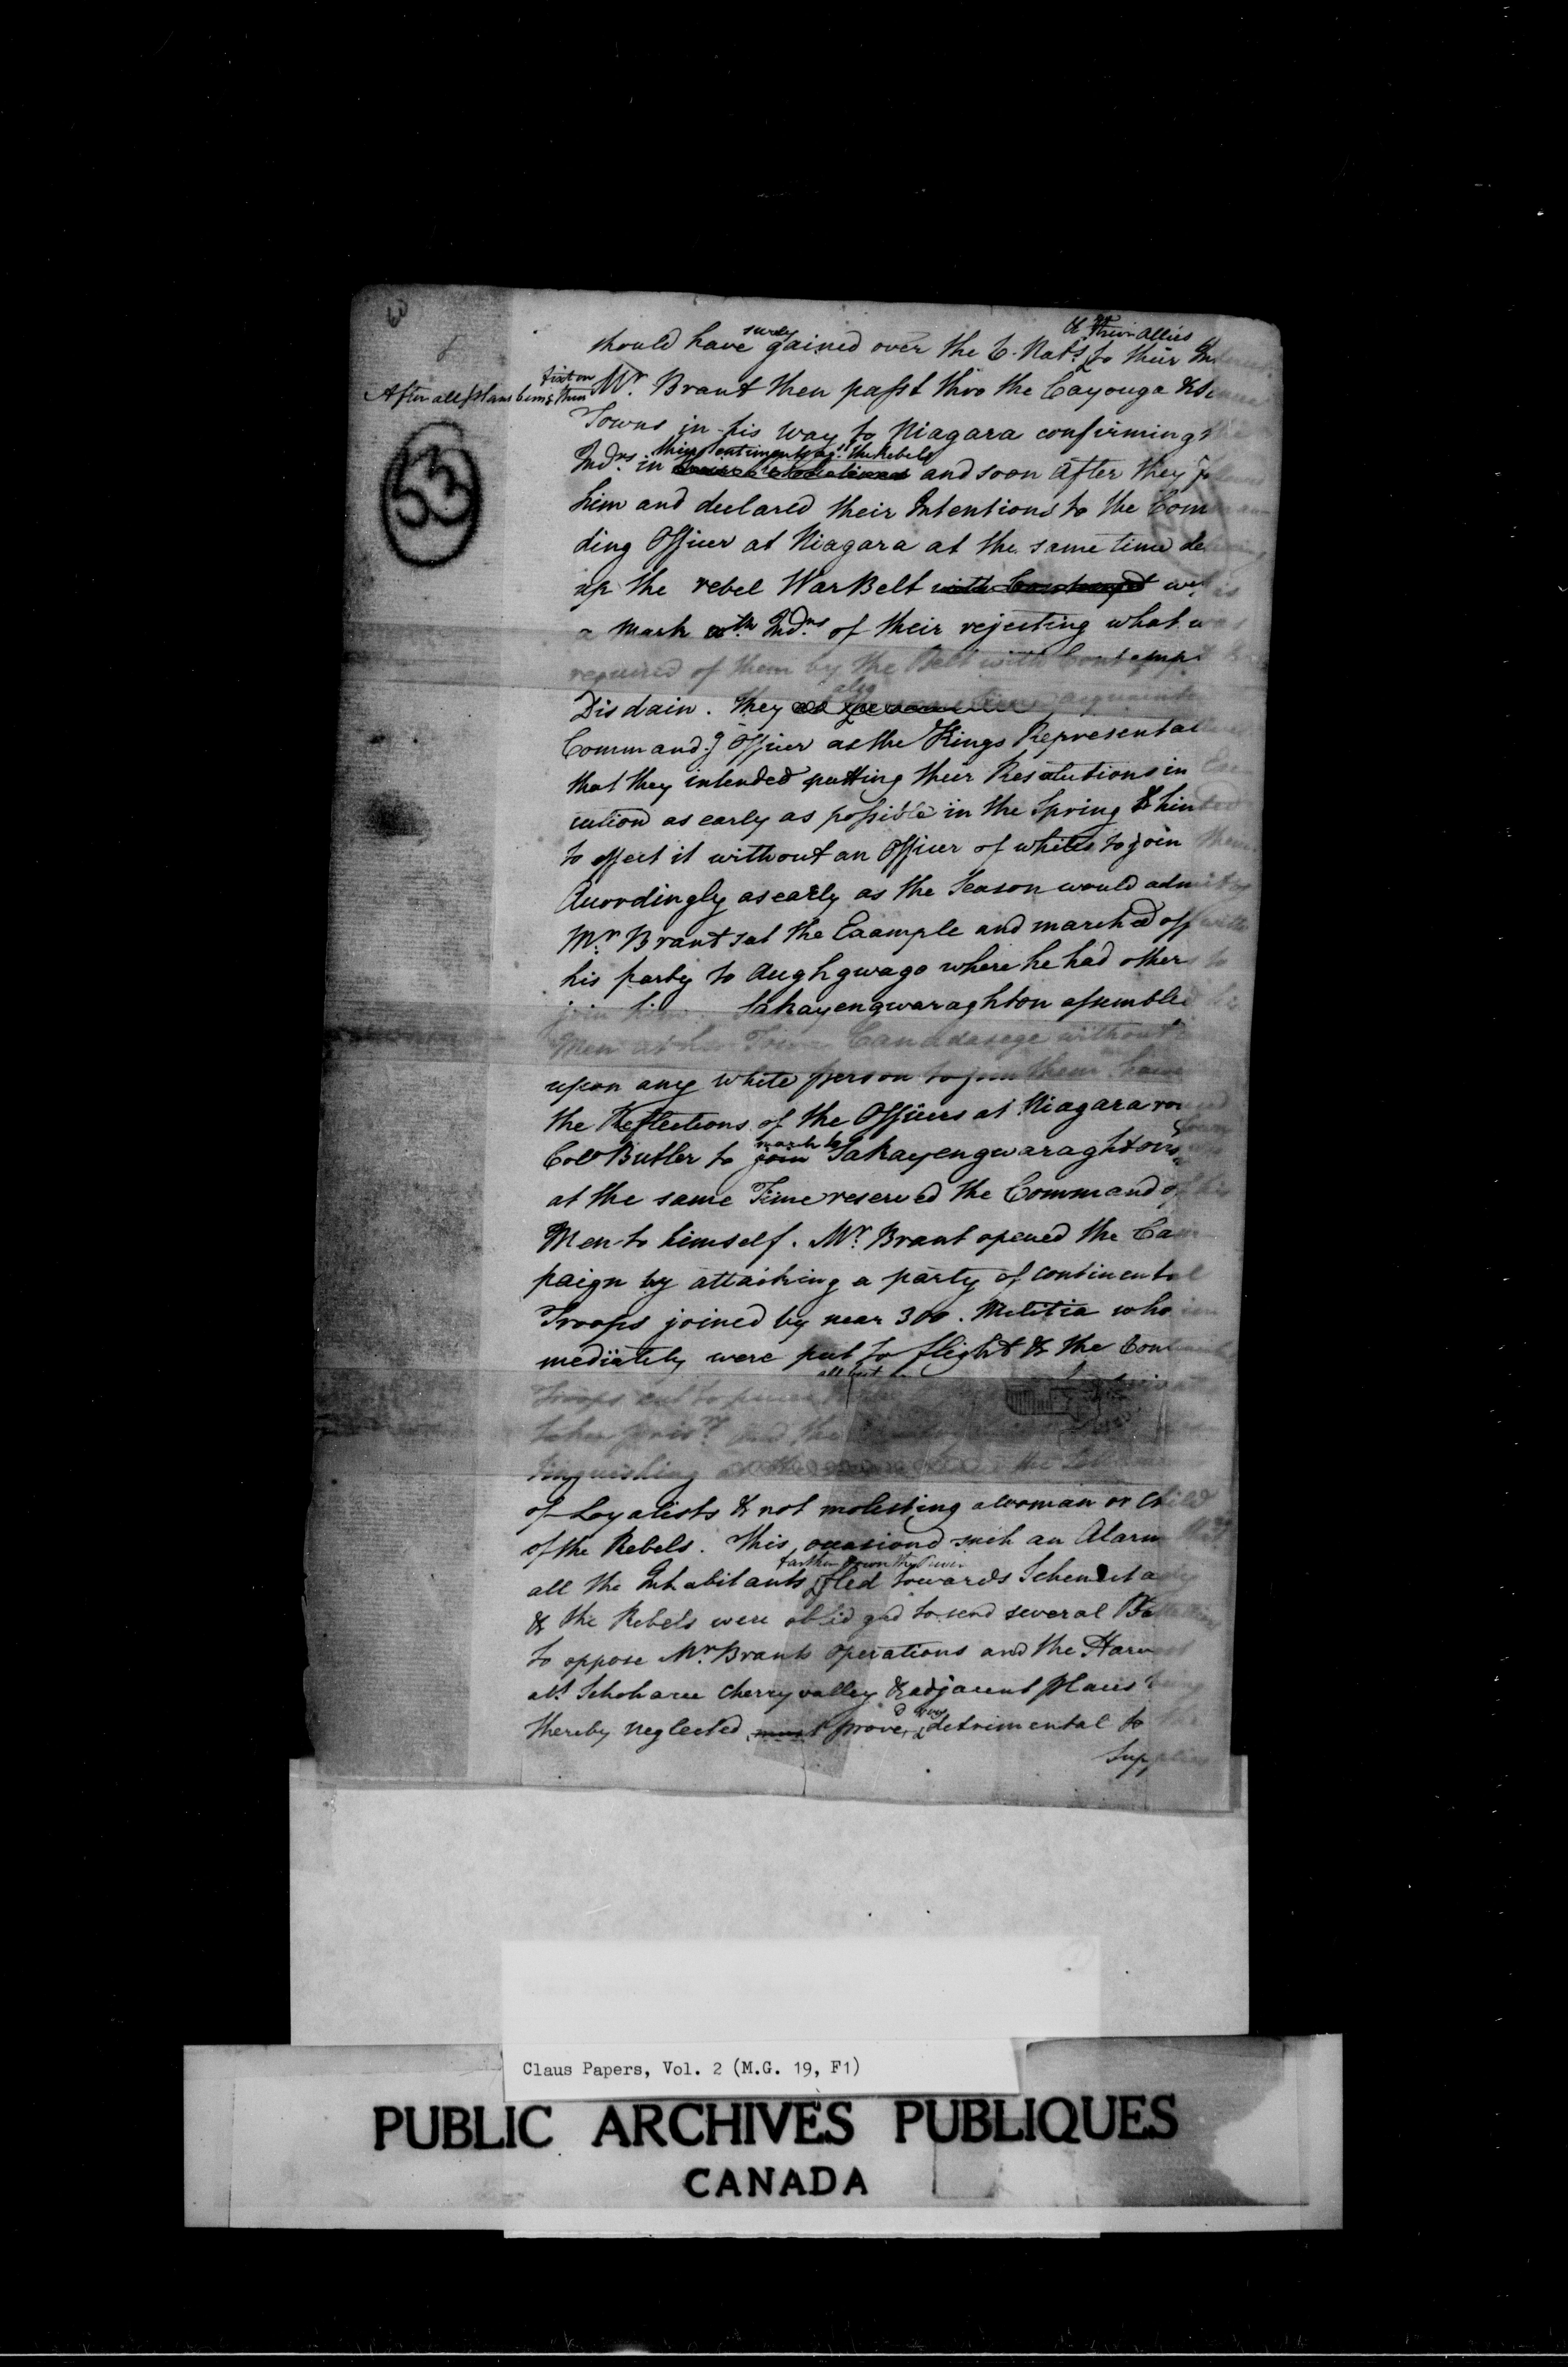 60
8
53
should have surely gained over the 6. Nats. & their Allies to their
After all plans being then fixt on Mr. Brant then passt thro the Cayouga &
Towns in his way to Niagara confirming
Indns. in their sentiments agt. the Rebels and soon after they
him and declared their Intentions to the Comman
ding Officer at Niagara at the same time
up the rebel War Belt with Contempt wch is
a mark wth Indns of their rejecting what was
required of them by the Belt with Contempt &
Disdain. they also at the same time acquainted
Commandg Officer as the Kings Representative
that they intended putting their Resolutions in Exe
cution as early as possible in the Spring & hinted
to effect it without an Officer of whites to join them.
Accordingly as early as the Season would admit of
Mr. Brant sat the Example and marched off with
his party to Aughgwago where he had others to
join him. Sakayengwaraghton assembled his
Men at his Town Canadasege without
upon any white person to join them
the Reflections of the Officers at Niagara
Colo Butler to join march to Sakayengwaraghtons Town who
at the same Time reserved the Command of his
Men to himself. Mr. Brant opened the Cam
paign by attacking a party of continental
Troops joined by near 300. Militia who im
mediately were put to flight & the
Troops cut to pieces all but
taken prisrs. and the
tinguishing
of Loyalists & not molesting a woman or Child
of the Rebels. This occasiond such an Alarm that
all the Inhabitants farther down the River fled towards Schenectady
& the Rebels were oblidged to send several Battalions
to oppose Mr. Brants operations and the Harvest
abt. Schoharee Cherryvalley & adjacent places being
thereby neglected must proved very detrimental to the
Supplies
Claus Papers, Vol. 2 (M.G. 19, F1)
PUBLIC ARCHIVES PUBLIQUES
CANADA